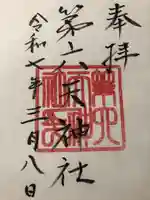 奉拝
第六天神社
令和七年三月八日